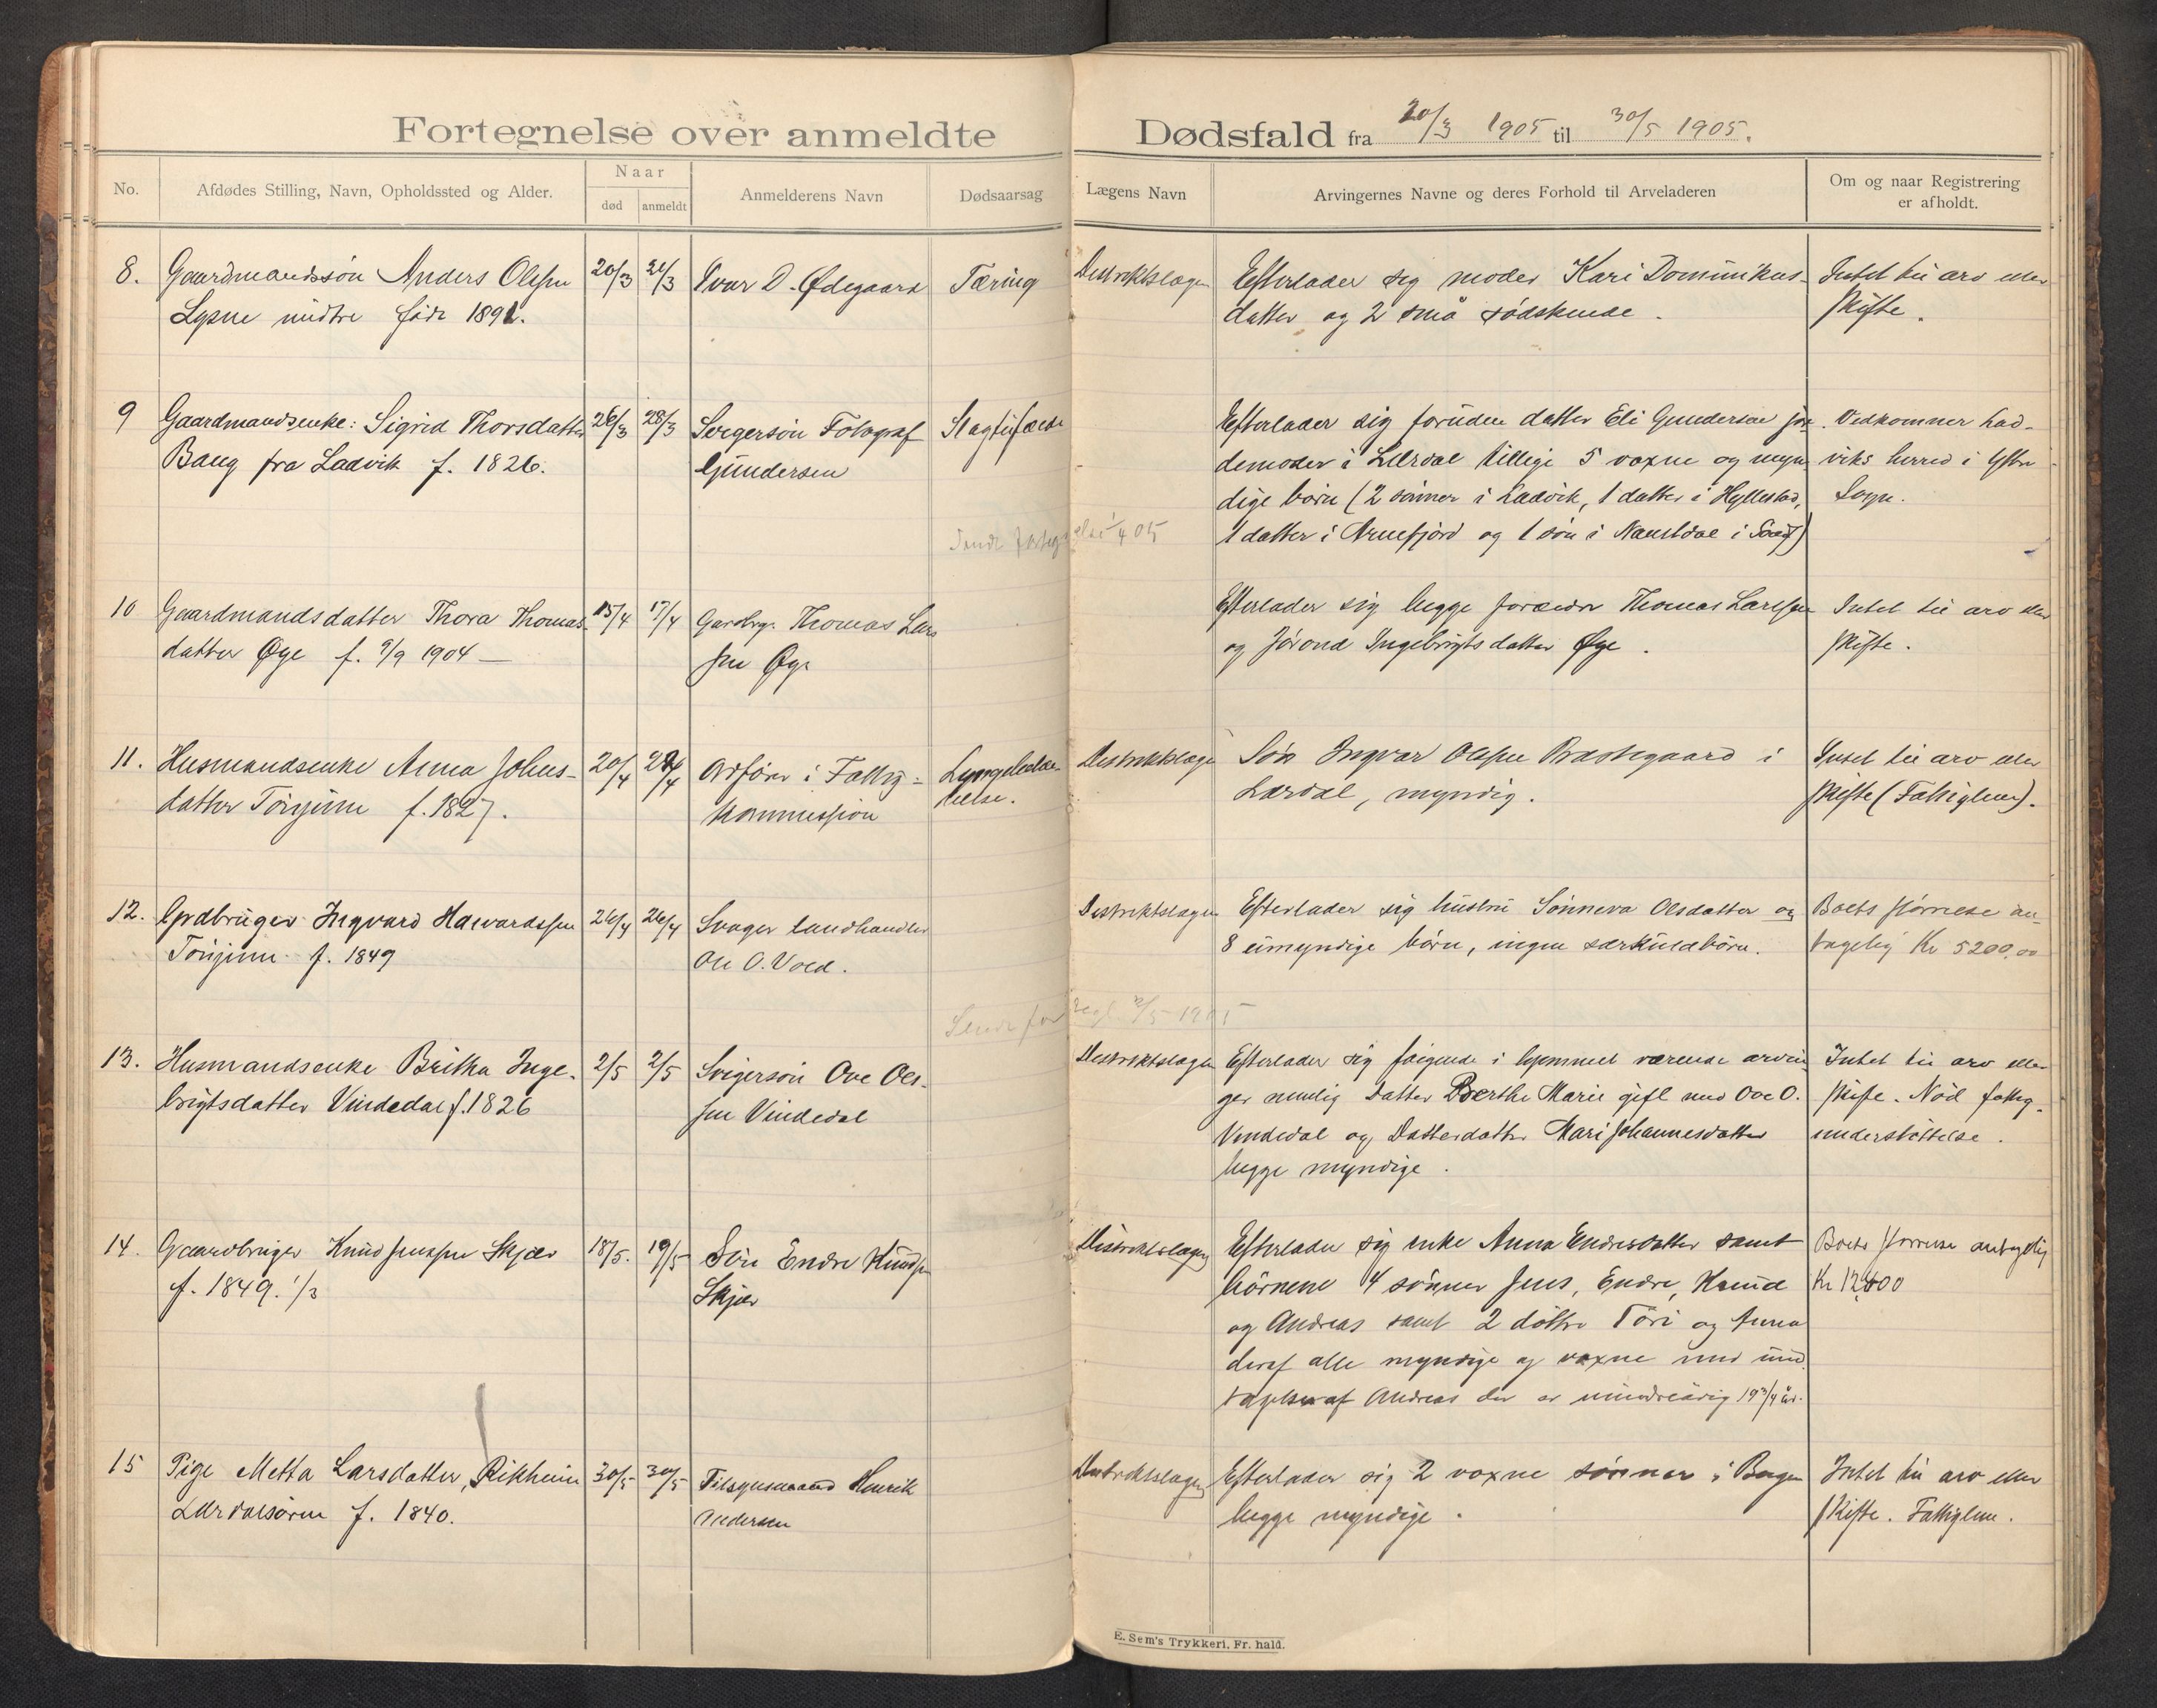 Fortegnelse over anmeldte Dødsfald fra 20/3 1905 til 30/5 1905.
No.
Afdødes Stilling, Navn, Opholdssted og Alder.
Naar
død
anmeldt
Anmelderens Navn
Dødsaarsag
Lægens Navn
Arvingernes Navne og deres Forhold til Arveladeren
Om og naar Registrering
er afholdt.
8. Gaardmandssøn Anders Olsen
Lysne midtre født 1891.
20/3
21/3
Ivar D. Ødegaard
Tæring
Distriktslægen
Efterlader sig moder Kari Dominikus-
datter og 2 små sødskende.
Intet til arv eller
skifte.
9 Gaardmandsenke: Sigrid Thorsdatter
Baug fra Ladvik f. 1826.
26/3
28/3
Svigersøn Fotograf
Gundersen
Efterlader sig foruden datter Eli Gundersen jor-
demoder i Lærdal tillige 5 voxne og myn
dige børn (2 sønner i Ladvik, 1 datter i Hyllestad,
1 datter i Arnefjord og 1 søn i Naustdal i Søndf)
Vedkommer Lad-
viks herred i Ytre
Sogn.
10 Gaardmandsdatter Thora Thomas-
datter Øye f. 9/9 1904 —
15/4
17/4
Gardbrg. Thomas Lars
sen Øye
Efterlader sig begge forældre Thomas Larssen
og Jørond Ingebrigtsdatter Øye.
Intet til arv eller
skifte.
11. Husmandsenke Anna Johns-
datter Tønjum f. 1827.
20/4
Ordfører i Fattig-
kommission
Lungebetæn-
delse.
Distriktslæge
Søn Ingvar Olsen Præstegaard i
Lærdal, myndig.
Intet til arv eller
skifte (Fattiglem).
12. Grdbruger Ingvard Halvardssen
Tønjum f. 1849
26/4
26/4
Svoger landhandler
Ole O. Vold.
Distriktslægen
Efterlader sig hustru Sønneva Olsdatter og
8 umyndige børn, ingen særkuldbørn.
Boets størrelse an-
tagelig Kr 5200,00
13. Husmandsenke Britha Inge-
brigtsdatter Vindedal f. 1826
2/5
2/5
Svigersøn Ove Ols-
sen Vindedal
Distriktslægen
Efterlader sig følgende i hjemmet værende arvin
ger nemlig datter Berthe Marie gift med Ove O.
Vindedal og Datterdatter Mari Johannesdatter
begge myndige.
Intet til arv eller
skifte. Nød fattig-
understøttelse.
14. Gaardbruger Knud Jenssen Skjær
f. 1849. 1/3
18/5.
19/5
Søn Endre Knudsen
Skjær
Distriktslægen
Efterlader sig enke Anna Endresdatter samt
børnene 4 sønner Jens, Endre, Knud
og Andreas samt 2 døttre Tøri og Anna
deraf alle myndige og voxne med und
tagelse af Andreas der er mindreårig 19 3/4 år.
Boets størrelse antagelig
15 Pige Metta Larsdatter, Rikheim
Lærdalsøren f. 1840.
30/5
30/5
Tilsynsmand Henrik
Andersen
Distriktslægen
Efterlader sig 2 voxne sønner i Bergen
begge myndige.
Intet til arv eller
skifte. Fattiglem.
E. Sem's Trykkeri, Fr. hald.